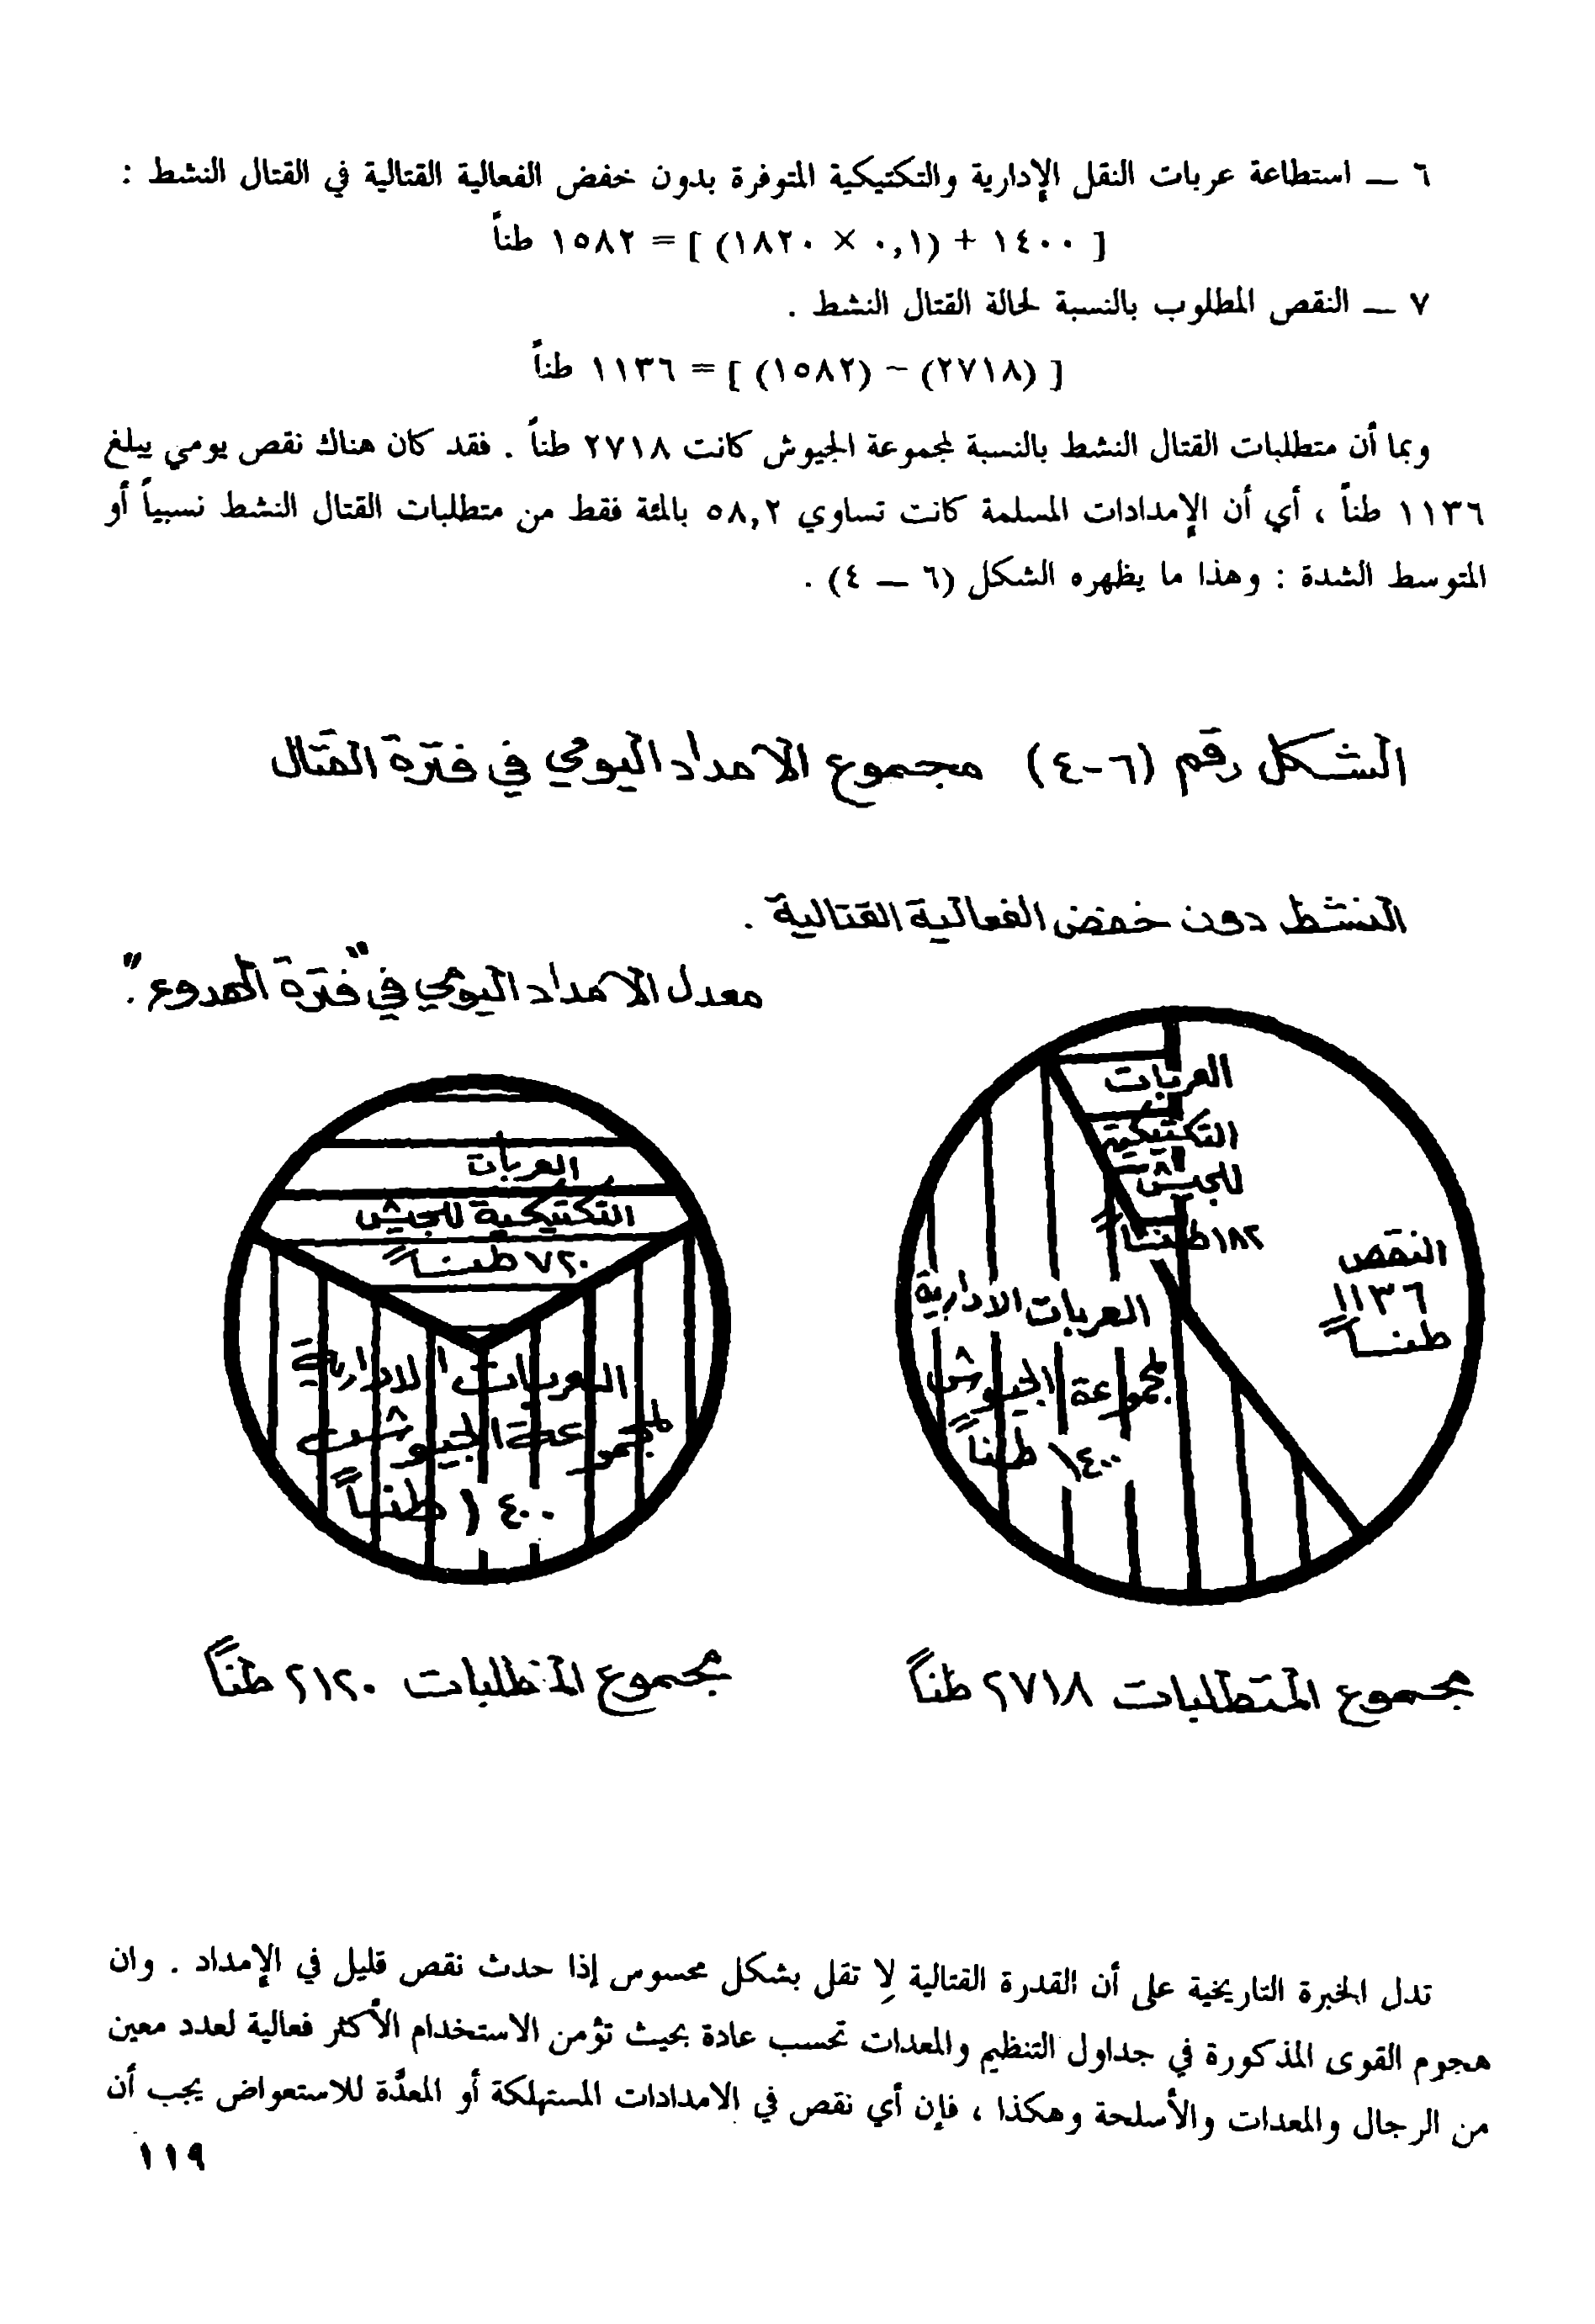 ٦ ــ استطاعة عربات النقل الإدارية والتكتيكية المتوفرة بدون خفض الفعالية القتالية في القتال النشط :
[ ١٤٠٠ + (٠,١ × ١٨٢٠) ] = ١٥٨٢ طناً
٧ ــ النقص المطلوب بالنسبة لحالة القتال النشط .
[ (٢٧١٨) − (١٥٨٢) ] = ١١٣٦ طناً
وبما أن متطلبات القتال النشط بالنسبة لمجموعة الجيوش كانت ٢٧١٨ طناً . فقد كان هناك نقص يومي يبلغ
١١٣٦ طناً ، أي أن الإمدادات المسلمة كانت تساوي ٥٨,٢ بالمئة فقط من متطلبات القتال النشط نسبياً أو
المتوسط الشدة : وهذا ما يظهره الشكل (٦ ــ ٤) .
الشكل رقم (٦-٤) مجموع الامداد اليومي في فترة القتال
النشط دون خفض الفعالية القتالية .
معدل الامداد اليومي في "فترة الهدوء".
العربات
التكتيكية
للجيش
١٨٢ طناً
النقص
١١٣٦
طناً
العربات الادارية
لمجموعة الجيوش
١٤٠٠ طناً
مجموع المتطلبات ٢٧١٨ طناً
العربات
التكتيكية للجيش
٧٢٠ طناً
العربات الادارية
لمجموعة الجيوش
١٤٠٠ طناً
مجموع المتطلبات ٢١٢٠ طناً
تدل الخبرة التاريخية على أن القدرة القتالية لا تقل بشكل محسوس إذا حدث نقص قليل في الإمداد . وان
هجوم القوى المذكورة في جداول التنظيم والمعدات تحسب عادة بحيث تؤمن الاستخدام الأكثر فعالية لعدد معين
من الرجال والمعدات والأسلحة وهكذا ، فإن أي نقص في الامدادات المستهلكة أو المعدَّة للاستعواض يجب أن
١١٩